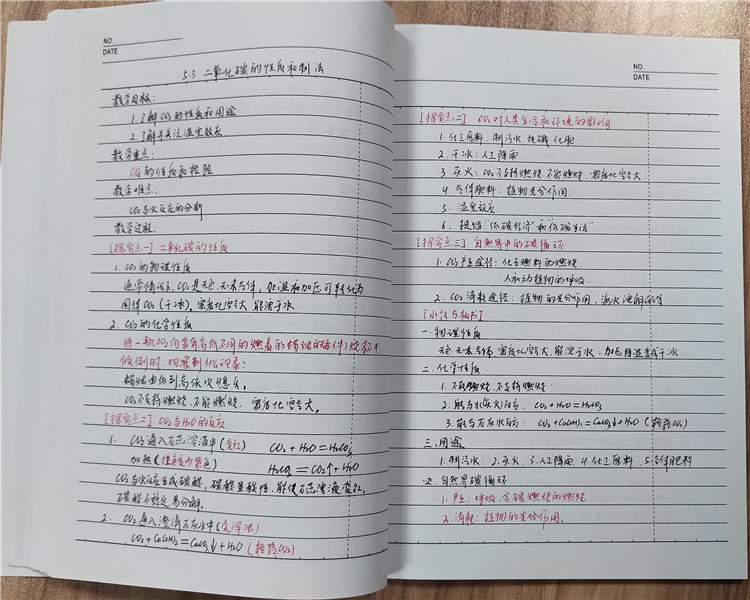 NO.
DATE
5.3 二氧化碳的性质和制法
教学目标:
1.了解CO₂的性质和用途
2.了解并关注温室效应
教学重点:
CO₂的性质和检验
教学难点:
CO₂与水反应的分析
教学过程:
[探究点一] 二氧化碳的性质
1. CO₂的物理性质
通常情况下,CO₂是无色无味气体,
固体CO₂(干冰),密度比空气大,能溶于水.
2. CO₂的化学性质
将一瓶CO₂向装有高低不同的燃着的蜡烛的烧杯中
倾倒时,观察到什么现象?
蜡烛由低到高依次熄灭.
CO₂不支持燃烧,不能燃烧,密度比空气大.
[探究点二] CO₂与H₂O的反应
1. CO₂通入石蕊溶液中(变红) CO₂+H₂O=H₂CO₃
加热 H₂CO₃=CO₂↑+H₂O
CO₂与水反应生成碳酸,碳酸显酸性,能使石蕊溶液变红,
碳酸不稳定易分解.
2. CO₂通入澄清石灰水中(变浑浊)
CO₂+Ca(OH)₂=CaCO₃↓+H₂O (检验CO₂)
NO.
DATE
[探究点二] CO₂对人类生活和环境的影响
1.化工原料:制汽水、纯碱、化肥
2.干冰:人工降雨
3.灭火:CO₂不支持燃烧,不能燃烧,密度比空气大
4.气体肥料:植物光合作用
5.温室效应
6.提倡"低碳经济"和"低碳生活"
[探究点三] 自然界中的碳循环
1.CO₂产生途径:化石燃料的燃烧
人和动植物的呼吸
2.CO₂消耗途径:植物的光合作用,
[小结与板书]
一.物理性质
无色无味气体,密度比空气大,能溶于水,加压降温变成干冰.
二.化学性质
1.不能燃烧,不支持燃烧.
2.能与水反应: CO₂+H₂O=H₂CO₃
3.能与石灰水反应: CO₂+Ca(OH)₂=CaCO₃↓+H₂O (检验CO₂)
三.用途
1.制汽水 2.灭火 3.人工降雨 4.化工原料 5.气体肥料
四.自然界碳循环
1.产生:呼吸,含碳燃料的燃烧
2.消耗:植物的光合作用.